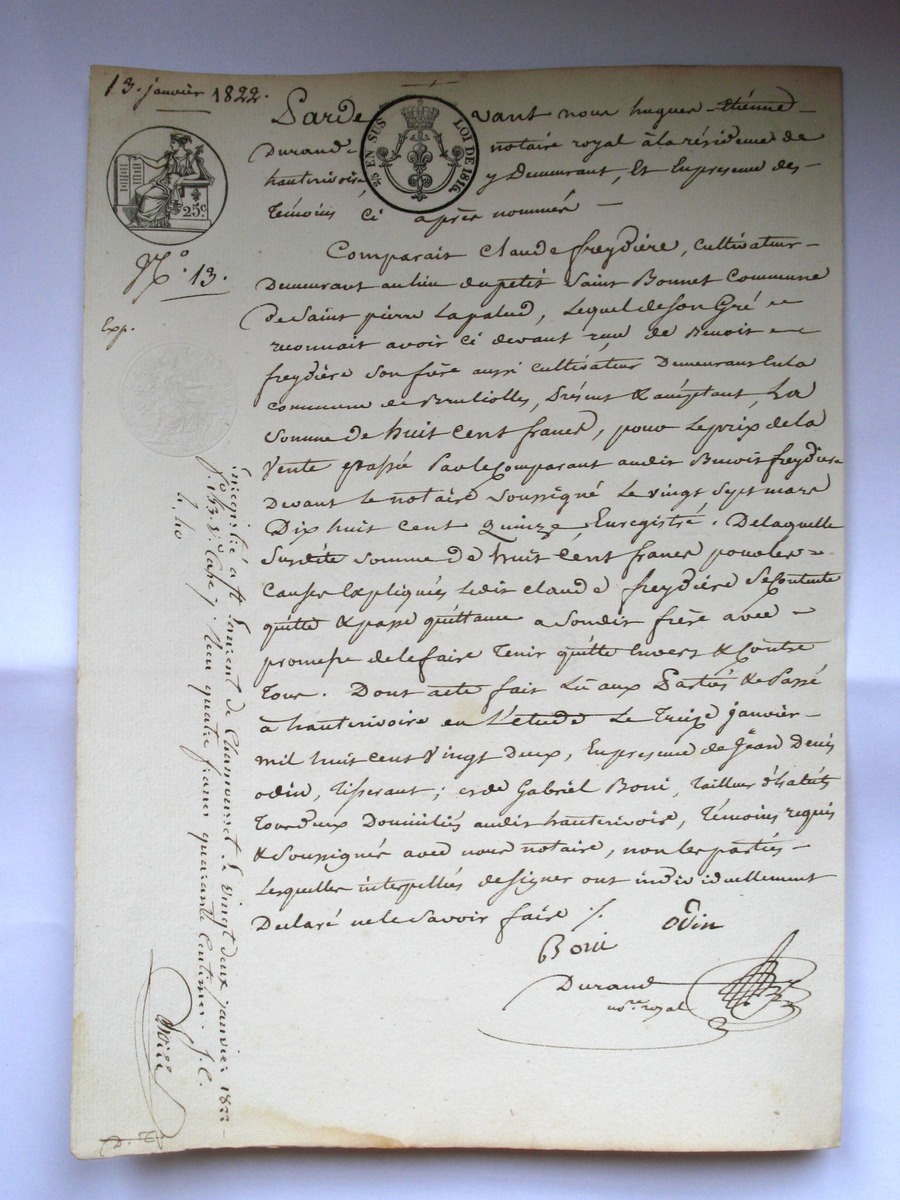 13. janvier 1822.
Parde vant nous hugues étienne
Durand notaire royal à la résidence de
hauterivoire y Demeurant, Et En presence des
témoins ci après nommés
EN SUS LOI DE 1816.
25c
Nº. 13.
Exp.
Comparait Claude freydière, cultivateur
Demeurant au lieu du petit Saint Bonnet Commune
de Saint pierre Lapalud, Lequel de son Gré
reconnait avoir ci devant reçu de Benoit
freydière Son frère aussi cultivateur Demeurant En la
commune de Brulliolles, Présent & acceptant, La
Somme de huit cent francs, pour Le prix de la
Vente passée Par le Comparant audit Benoit freydiere
devant le notaire Soussigné Le vingt Sept mars
Dix huit cent Quinze, Enregistré. De laquelle
Susdite somme de huit cent francs pour les
Causes Expliquées Ledit claude freydière Se Contente
quitte & passe quittance a Son dit frère avec
promesse de le faire Tenir quitte Envers & Contre
Tous. Dont acte fait Lu aux Parties & Passé
à hauterivoire en L'étude Le Treize janvier
mil huit cent Vingt deux, En presence de Jean Denis
odin, Tisserant; et de Gabriel Boni, Tailleur d'habits
Tous deux Domiciliés audit hauterivoire, Témoins requis
& Soussignés avec nous notaire, non les parties
Lesquelles interpellées de signer ont individuellement
Declaré ne le Savoir faire ./.
Odin
Boni
Durand
nore. royal
Enregistré a St Laurent de Chamousset Le vingt deux janvier 1822
fo. 113. Vo. Case 7. Reçu quatre francs quarante Centimes. J.C.
4,40